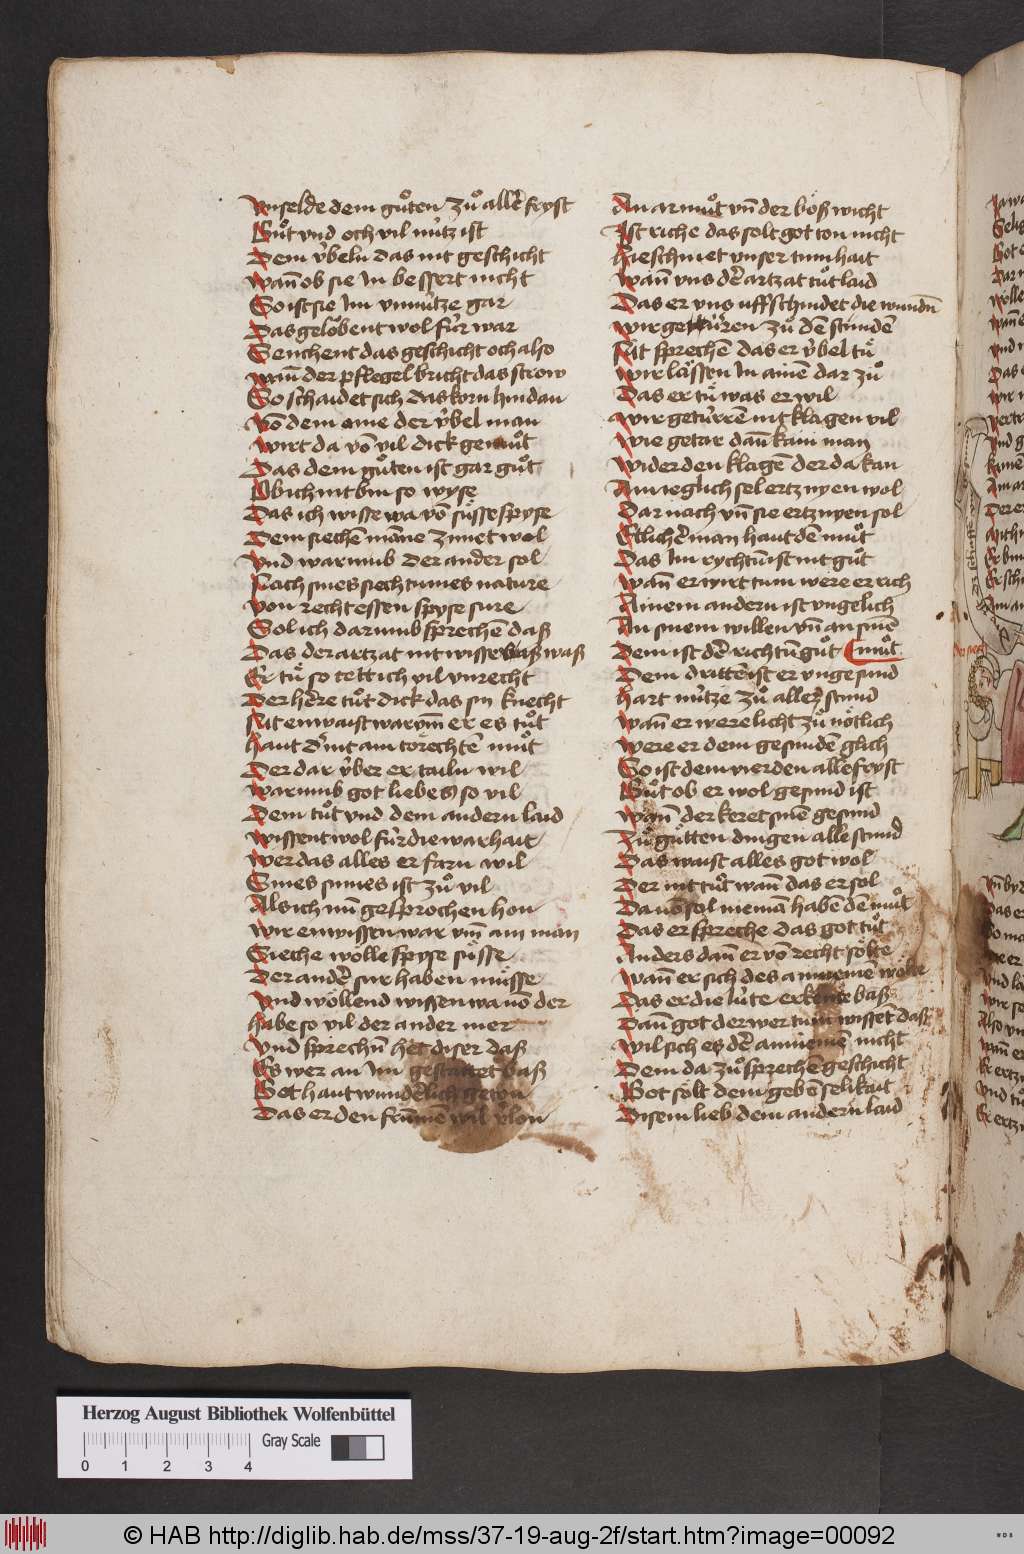 Vnselde dem guͦten zuͦ aller fryst
Guͦt vnd och vil nuͤtz ist
Dem vͤbeln das nit geschicht
Wan̄ ob sie Im bessert nicht
So ist sie Im vnnuͤtze gar
Das geloͤbent wol fuͤr war
Senchent das geschicht och also
Wan̄ der pflegel bricht das strow
So schaidet sich das korn hindan
Vō dem eine der vͤbel man
Wirt da vō vil dick gemuͦt
Das dem guͦten ist gar guͦt
Ob ich nit bin so wyse
Das ich wisse wa vō suͤsse spyse
Dem siechē māne zimet wol
Vnd warumb der ander sol
Nach sines siechtumes nature
Von recht essen spyse sure
Sol ich darumb sprechē daß
Das der artzat nit wisse waß
Er tuͤ so tett ich vil vnrecht
Der herre tuͦt dick das sin knecht
Nit enwaist warym̄ er es tuͦt
Haut der nit ain torechtē muͦt
Der dar vͤber ertailn wil
Warumb got liebes so vil
Dem tuͦt vnd dem andern laid
Wissent wol fuͤr die warhait
Wer das alles erfarn wil
Sines sinnes ist zuͦ vil
Als ich nun̄ gesprochen hon
Wir enwissen war vm̄ ain man
Sieche woͤlle spyse suͤsse
Der ander sur haben muͤsse
Vnd woͤllend wissen wa vō der
Habe so vil der ander mer
Vnd sprechn̄ het diser daß
Es wer an Im gestattet baß
Got haut wunderlich geton
Das er den frūmē wil vͤlon
An armuͦt vn̄ der boͤß wicht
Ist riche das solt got ton nicht
Hie schinet vnser tumhait
Wan̄ vns der artzat tuͦt laid
Das er vns uff schnidet die wundn̄
Wir getuͤren zuͦ den̄ stunden
Nit sprechē das er vͤbel tuͤ
Wir laͤssen In ainē dar zuͦ
Das er tuͤ was er wil
Wir getuͤren nit klagen vil
Wie getar dan̄ kain man
Wider den klagē der da kan
Ain ieglich sel ertznyen wol
Dar nach vn̄ sie ertznyen sol
Etlicher man haut den̄ muͦt
Das Im rychtum ist nit guͦt
Wan̄ er wirt tum were er rich
Ainem andern ist vngelich
An sinem willen vn̄ an sinē
Dem ist der richtum guͦt muͦt
Dem drittē ist er vngesund
Hart nuͤtze zuͦ aller stund
Wan̄ er were licht zuͦ noͤtlich
Were er dem gesundē glich
So ist dem vierden alle fryst
Guͦt ob er wol gesund ist
Wan̄ der keret sinē gesund
Zuͦ guͤtten dingen alle stund
Das waist alles got wol
Der nit tuͦt wan̄ das er sol
Da vō sol niemā habē den muͦt
Das er spreche das got tuͦt
Anders dan̄ er vō recht soͤlte
Wan̄ er sich des annemē woͤlte
Das er die luͤte erkente baß
Dan̄ got der wer tum wisset daß
Wil sich es der annemē nicht
Dem da zuͦ sprechē geschicht
Got solt dem gebē selikait
Disem lieb dem andern laid
Herzog August Bibliothek Wolfenbüttel
Gray Scale
0 1 2 3 4
© HAB http://diglib.hab.de/mss/37-19-aug-2f/start.htm?image=00092